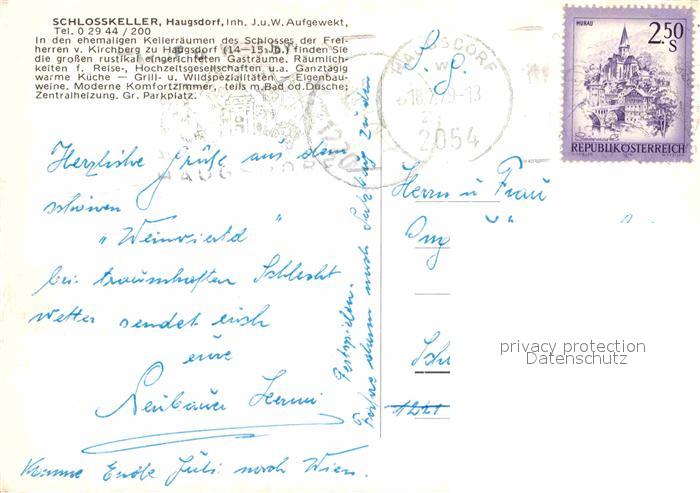 SCHLOSSKELLER, Haugsdorf, Inh. J.u.W. Aufgewekt,
Tel. 0 29 44 / 200
In den ehemaligen Kellerräumen des Schlosses der Frei-
herren v. Kirchberg zu Haugsdorf (14–15.Jb.) finden Sie
die großen rustikal eingerichteten Gasträume. Räumlich-
keiten f. Reise-, Hochzeitsgesellschaften u.a. Ganztägig
warme Küche — Grill- u. Wildspezialitäten — Eigenbau-
weine. Moderne Komfortzimmer, teils m.Bad od.Dusche;
Zentralheizung. Gr. Parkplatz.
HAUGSDORF
Herzliche Grüße aus dem
schönen
"Weinviertel"
bei traumhaften Schlecht
wetter sendet euch
eure
Neubauer Hermi
Komme Ende Juli nach Wien.
Fahre dann nach Salzburg zu den
Festspielen.
HAUGSDORF
18.7.79-13
2054
S. g.
Herrn u Frau
Ing
1221
MURAU
2.50
S
REPUBLIK ÖSTERREICH
privacy protection
Datenschutz